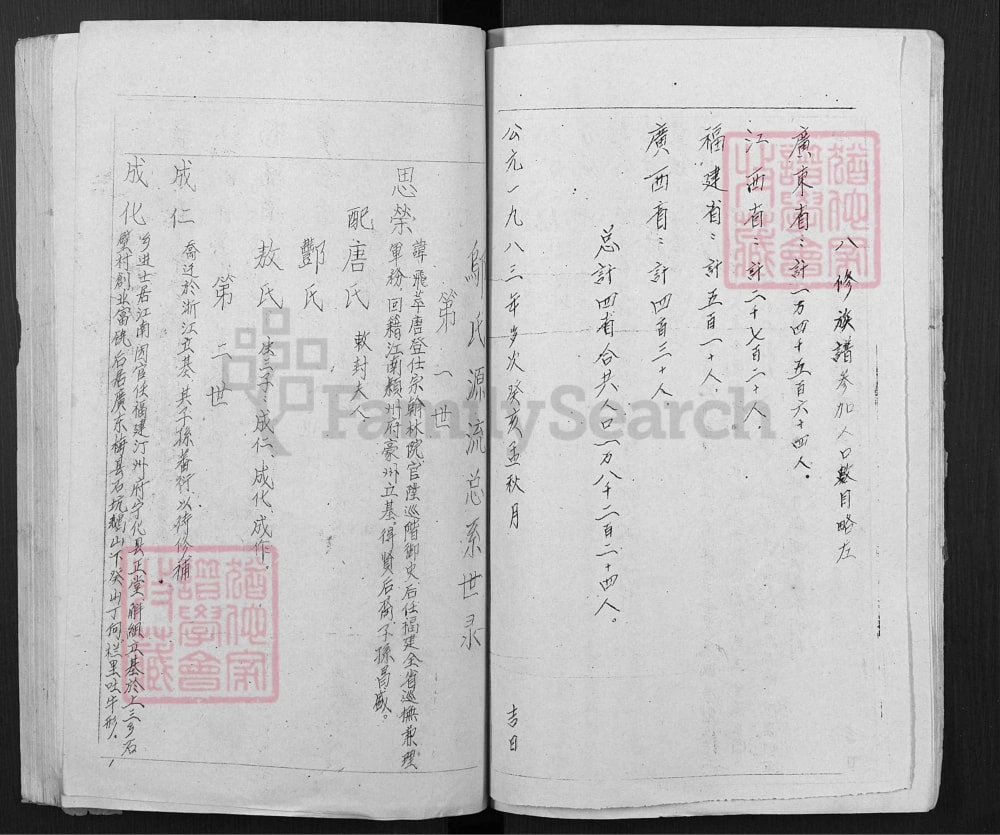 八修族譜參加人口數目略左
廣東省：計一万四千五百六十四人。
江西省：計二千七百二十人。
福建省：計五百一十人。
廣西省：計四百三十人。
总計四省合共人口一万八千二百二十四人。
公元一九八三年岁次癸亥孟秋月 吉日
鄔氏源流总系世录
第一世
思榮 諱飛萃唐登仕宗翰林院官陞巡階御史后任福建全省巡撫兼理
軍務、回籍江南颍州府豪州立基、得賢后裔子孫昌盛。
配唐氏 敕封夫人
酆氏
敖氏 生三子：成仁、成化、成作。
第二世
成仁 喬迁於浙江立基、其子孫蕃衍以待修補
成化 乡进士居江南因官任福建汀州府宁化县正堂解組立基於上三乡石
壁村創业富饒后居廣东梅县石坑鵝山下癸山丁向栏里吐牛形。
FamilySearch
猶他家譜學會特藏
猶他家譜學會特藏